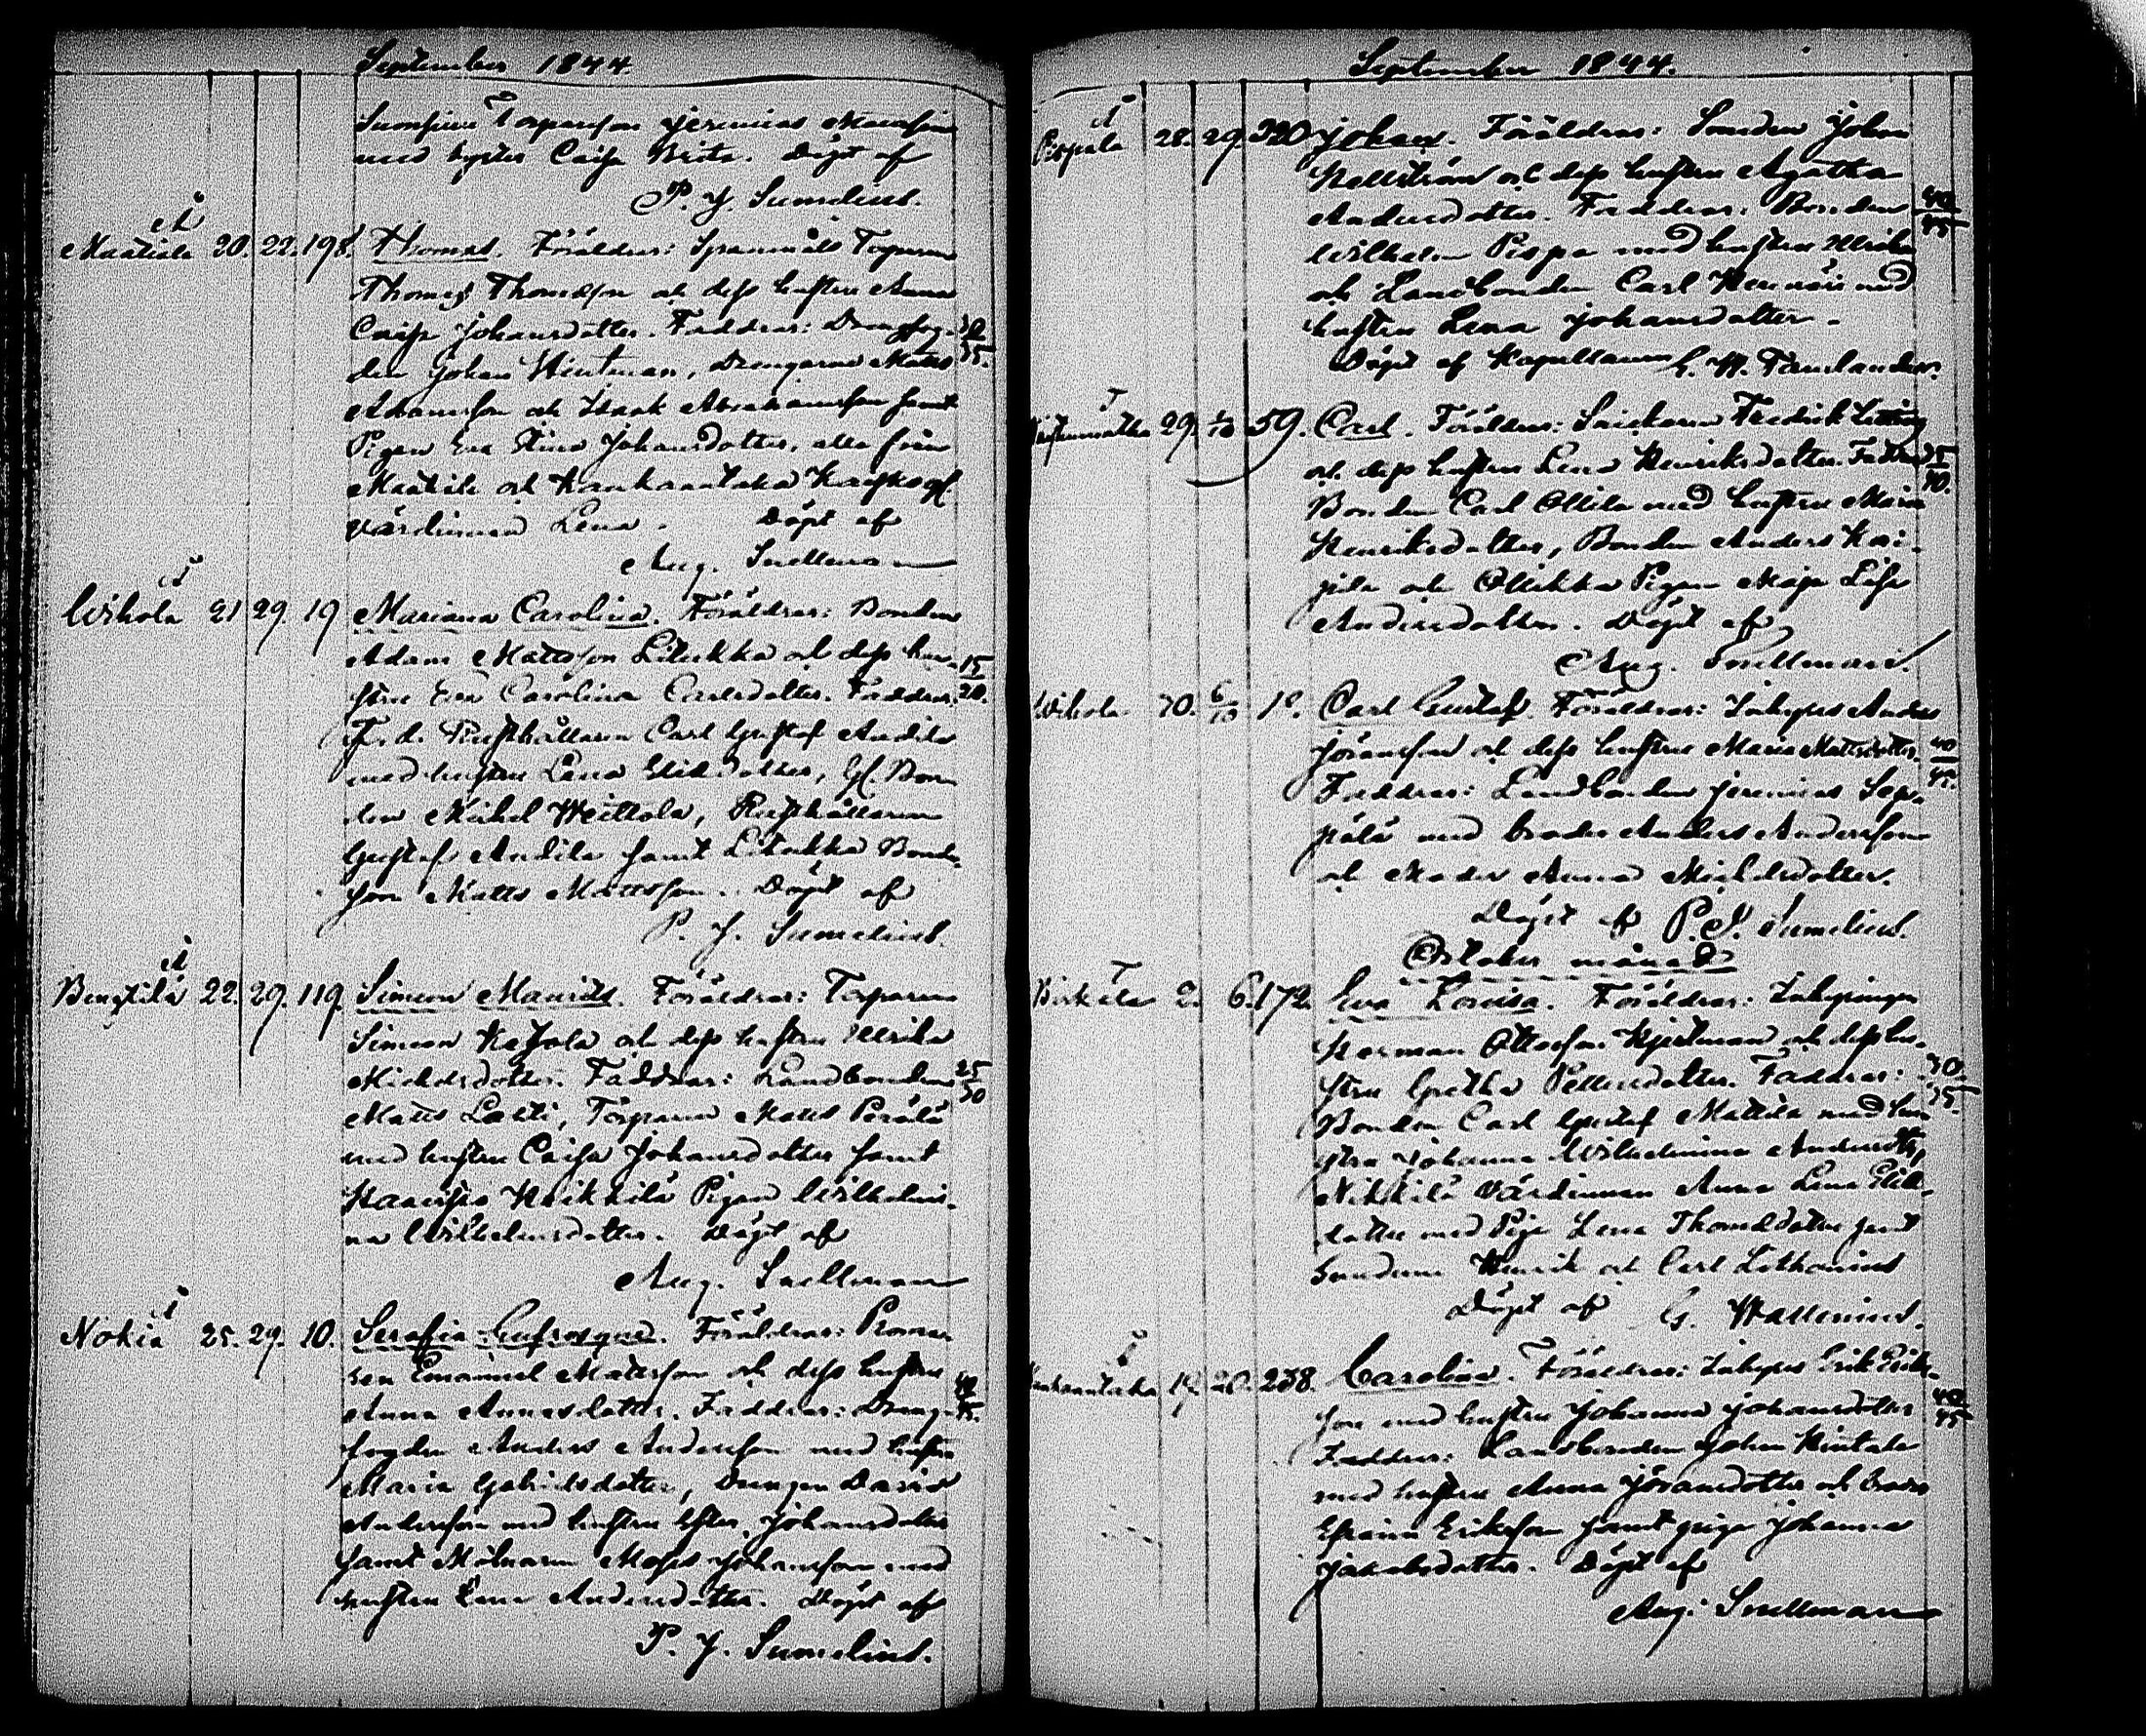 September 1844.
Torparson Jeremias
med syster Caisa Brita. Döpt af
P. J. Sumelius.
Maatiala 20. 22. 198. Thomas. Föräldrar: Spanmåls Torparen
Thomas Thomasson och dess hustru Anna
Caisa Johansdotter. Faddrar: Drengfog- 30
den Johan Hintman, Drengarne Matts 35.
Adamsson och Isaak Abrahamsson samt
Pigan Eva Stina Johansdotter, alla från
Maatiala och Kankaantaka
värdinnan Lena. Döpt af
Aug. Snellman
Wihola 21 29. 19 Mariana Carolina. Föräldrar: Bonden
Adam Mattsson Liukka och dess hu- 15
stru Eva Carolina Carlsdotter. Faddrar: 20.
F.d. Rusthållaren Carl Gustaf Andila
med hustru Lena Eliædotter, Gl. Bon-
den Michel Heittola, Rusthållaren
Gustaf Andila samt Liukka Bonde-
son Matts Mattsson. Döpt af
P. J. Sumelius.
Bengtilä 22. 29. 119. Simeon Maurits. Föräldrar: Torparen
Simeon Kajola och dess hustru Ullrika
Michelsdotter. Faddrar: Landbonden 25
Matts Lasti, Torparen Matts Perälä 30
med hustru Caisa Johansdotter samt
Heikkilä Pigan Wilhelmi-
na Wilhelmsdotter. Döpt af
Aug. Snellman
Nokia 25. 29. 10. Serafia Eufrosyne. Föräldrar:
Emanuel Matsson och dess hustru 40
Anna Annasdotter. Faddrar: Dreng- 45.
fogden Anders Andersson med hustru
Maria Gabrielsdotter, Drengen David
Andersson med hustru Ester Johansdotter
samt Mölnaren Moses Johansson med
hustru Lena Andersdotter. Döpt af
P. J. Sumelius.
September 1844.
Pispala 28. 29. 320 Johan. Föräldrar: Smeden Johan
Hellström och dess hustru Agatha
Andersdotter. Faddrar: Bonden 40
Wilhelm Pispa med hustru Ullrika 45
och Landbonden Carl Hennäri med
hustru Lena Johansdotter.
Döpt af Kapellanen
29. 1/10 59. Carl. Föräldrar: Snickaren Fredrik
och dess hustru Lena Henriksdotter. Faddrar 35
Bonden Carl Ollila med hustru Maria 40.
Henriksdotter, Bonden Anders Kai-
pila och Ollikka Pigan Maja Lisa
Andersdotter. Döpt af
Aug. Snellman.
Wihola 30. 6/10 18. Carl Gustaf. Föräldrar: Inhyses Anders
Jöransson och dess hustru Maria Mattsdotter. 40
Faddrar: Landbonden Jeremias Sep- 45.
pälä med broder Anders Andersson
och Moder Anna Michelsdotter.
Döpt af P. J. Sumelius.
October månad
Birkala 2. 6. 172. Eva Lovisa. Föräldrar: Inhysingen
Herman Ottosson Hjelman och dess hu-
stru Gretha Pellersdotter. Faddrar: 30.
Bonden Carl Gustaf Mattila med hu- 35.
stru Johanna Wilhelmina Andersdtr,
Nikkilä värdinnan Anna Lena Eliæ-
dotter med Piga Lena Thomasdotter samt
Henrik och Carl Lithonius
Döpt af G. Wallenius.
Kankaantaka 14. 20. 238. Carolina. Föräldrar: Inhyses Erik Eriks-
son med hustru Johanna Johansdotter 40
Faddrar: Landbonden Johan Hintala 45
med hustru Anna Jöransdotter och broder
Efraim Eriksson samt piga Johanna
Jakobsdotter. Döpt af
Aug. Snellman